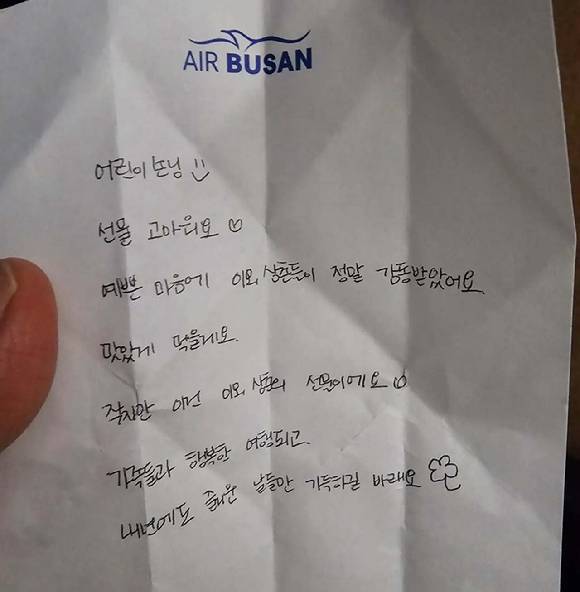 AIR BUSAN
어린이 손님
선물 고마워요
예쁜 마음에 이모, 삼촌들이 정말 감동받았어요.
맛있게 먹을게요.
작지만 이건 이모, 삼촌의 선물이에요
가족들과 행복한 여행되고.
내년에도 즐거운 날들만 가득하길 바래요